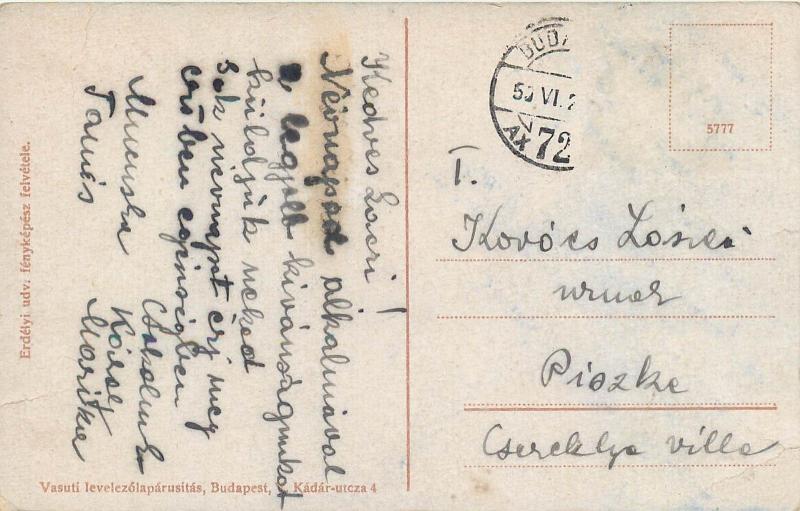 Kedves Laczi!
Névnapod alkalmával
a legjobb kivánságunkat
küldjük neked
Sok névnapot érj meg
erőben egészségben
Csokolunk
Károly
Mariska
Tamás
Erdélyi udv. fényképész felvétele.
Vasuti levelezőlapárusitás, Budapest, Kádár-utcza 4
BUDA
VI. 2
72
5777
T.
Kovács
urnak
Piszke
villa